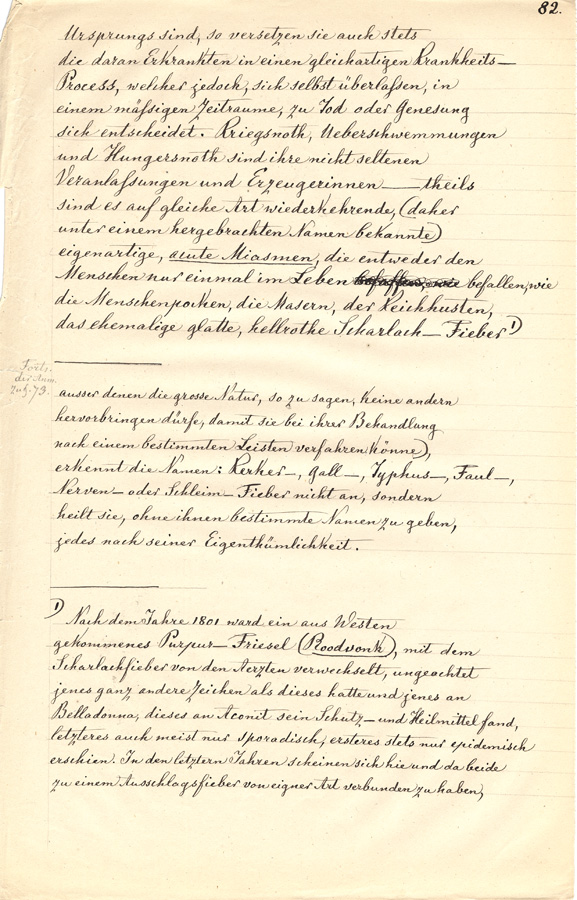 82.
Ursprungs sind, so versetzen sie auch stets
die daran Erkrankten in einen gleichartigen Krankheits-
Process, welcher jedoch, sich selbst überlassen, in
einem mässigen Zeitraume, zu Tod oder Genesung
sich entscheidet. Kriegsnoth, Ueberschwemmungen
und Hungersnoth sind ihre nicht seltenen
Veranlassungen und Erzeugerinnen — theils
sind es auf gleiche Art wiederkehrende, (daher
unter einem hergebrachten Namen bekannte)
eigenartige, acute Miasmen, die entweder den
Menschen nur einmal im Leben befallen, wie
die Menschenpocken, die Masern, der Keichhusten,
das ehemalige glatte, hellrothe Scharlach-Fieber 1)
Forts.
der Anm.
zu §. 73.
ausser denen die grosse Natur, so zu sagen, keine andern
hervorbringen dürfe, damit sie bei ihrer Behandlung
nach einem bestimmten Leisten verfahren könne),
erkennt die Namen: Kerker-, Gall-, Typhus-, Faul-,
Nerven- oder Schleim-Fieber nicht an, sondern
heilt sie, ohne ihnen bestimmte Namen zu geben,
jedes nach seiner Eigenthümlichkeit.
1) Nach dem Jahre 1801 ward ein aus Westen
gekommenes Purpur-Friesel (Roodvonk), mit dem
Scharlachfieber von den Aerzten verwechselt, ungeachtet
jenes ganz andere Zeichen als dieses hatte und jenes an
Belladonna, dieses an Aconit sein Schutz- und Heilmittel fand,
letzteres auch meist nur sporadisch, ersteres stets nur epidemisch
erschien. In den letztern Jahren scheinen sich hie und da beide
zu einem Ausschlagsfieber von eigner Art verbunden zu haben,